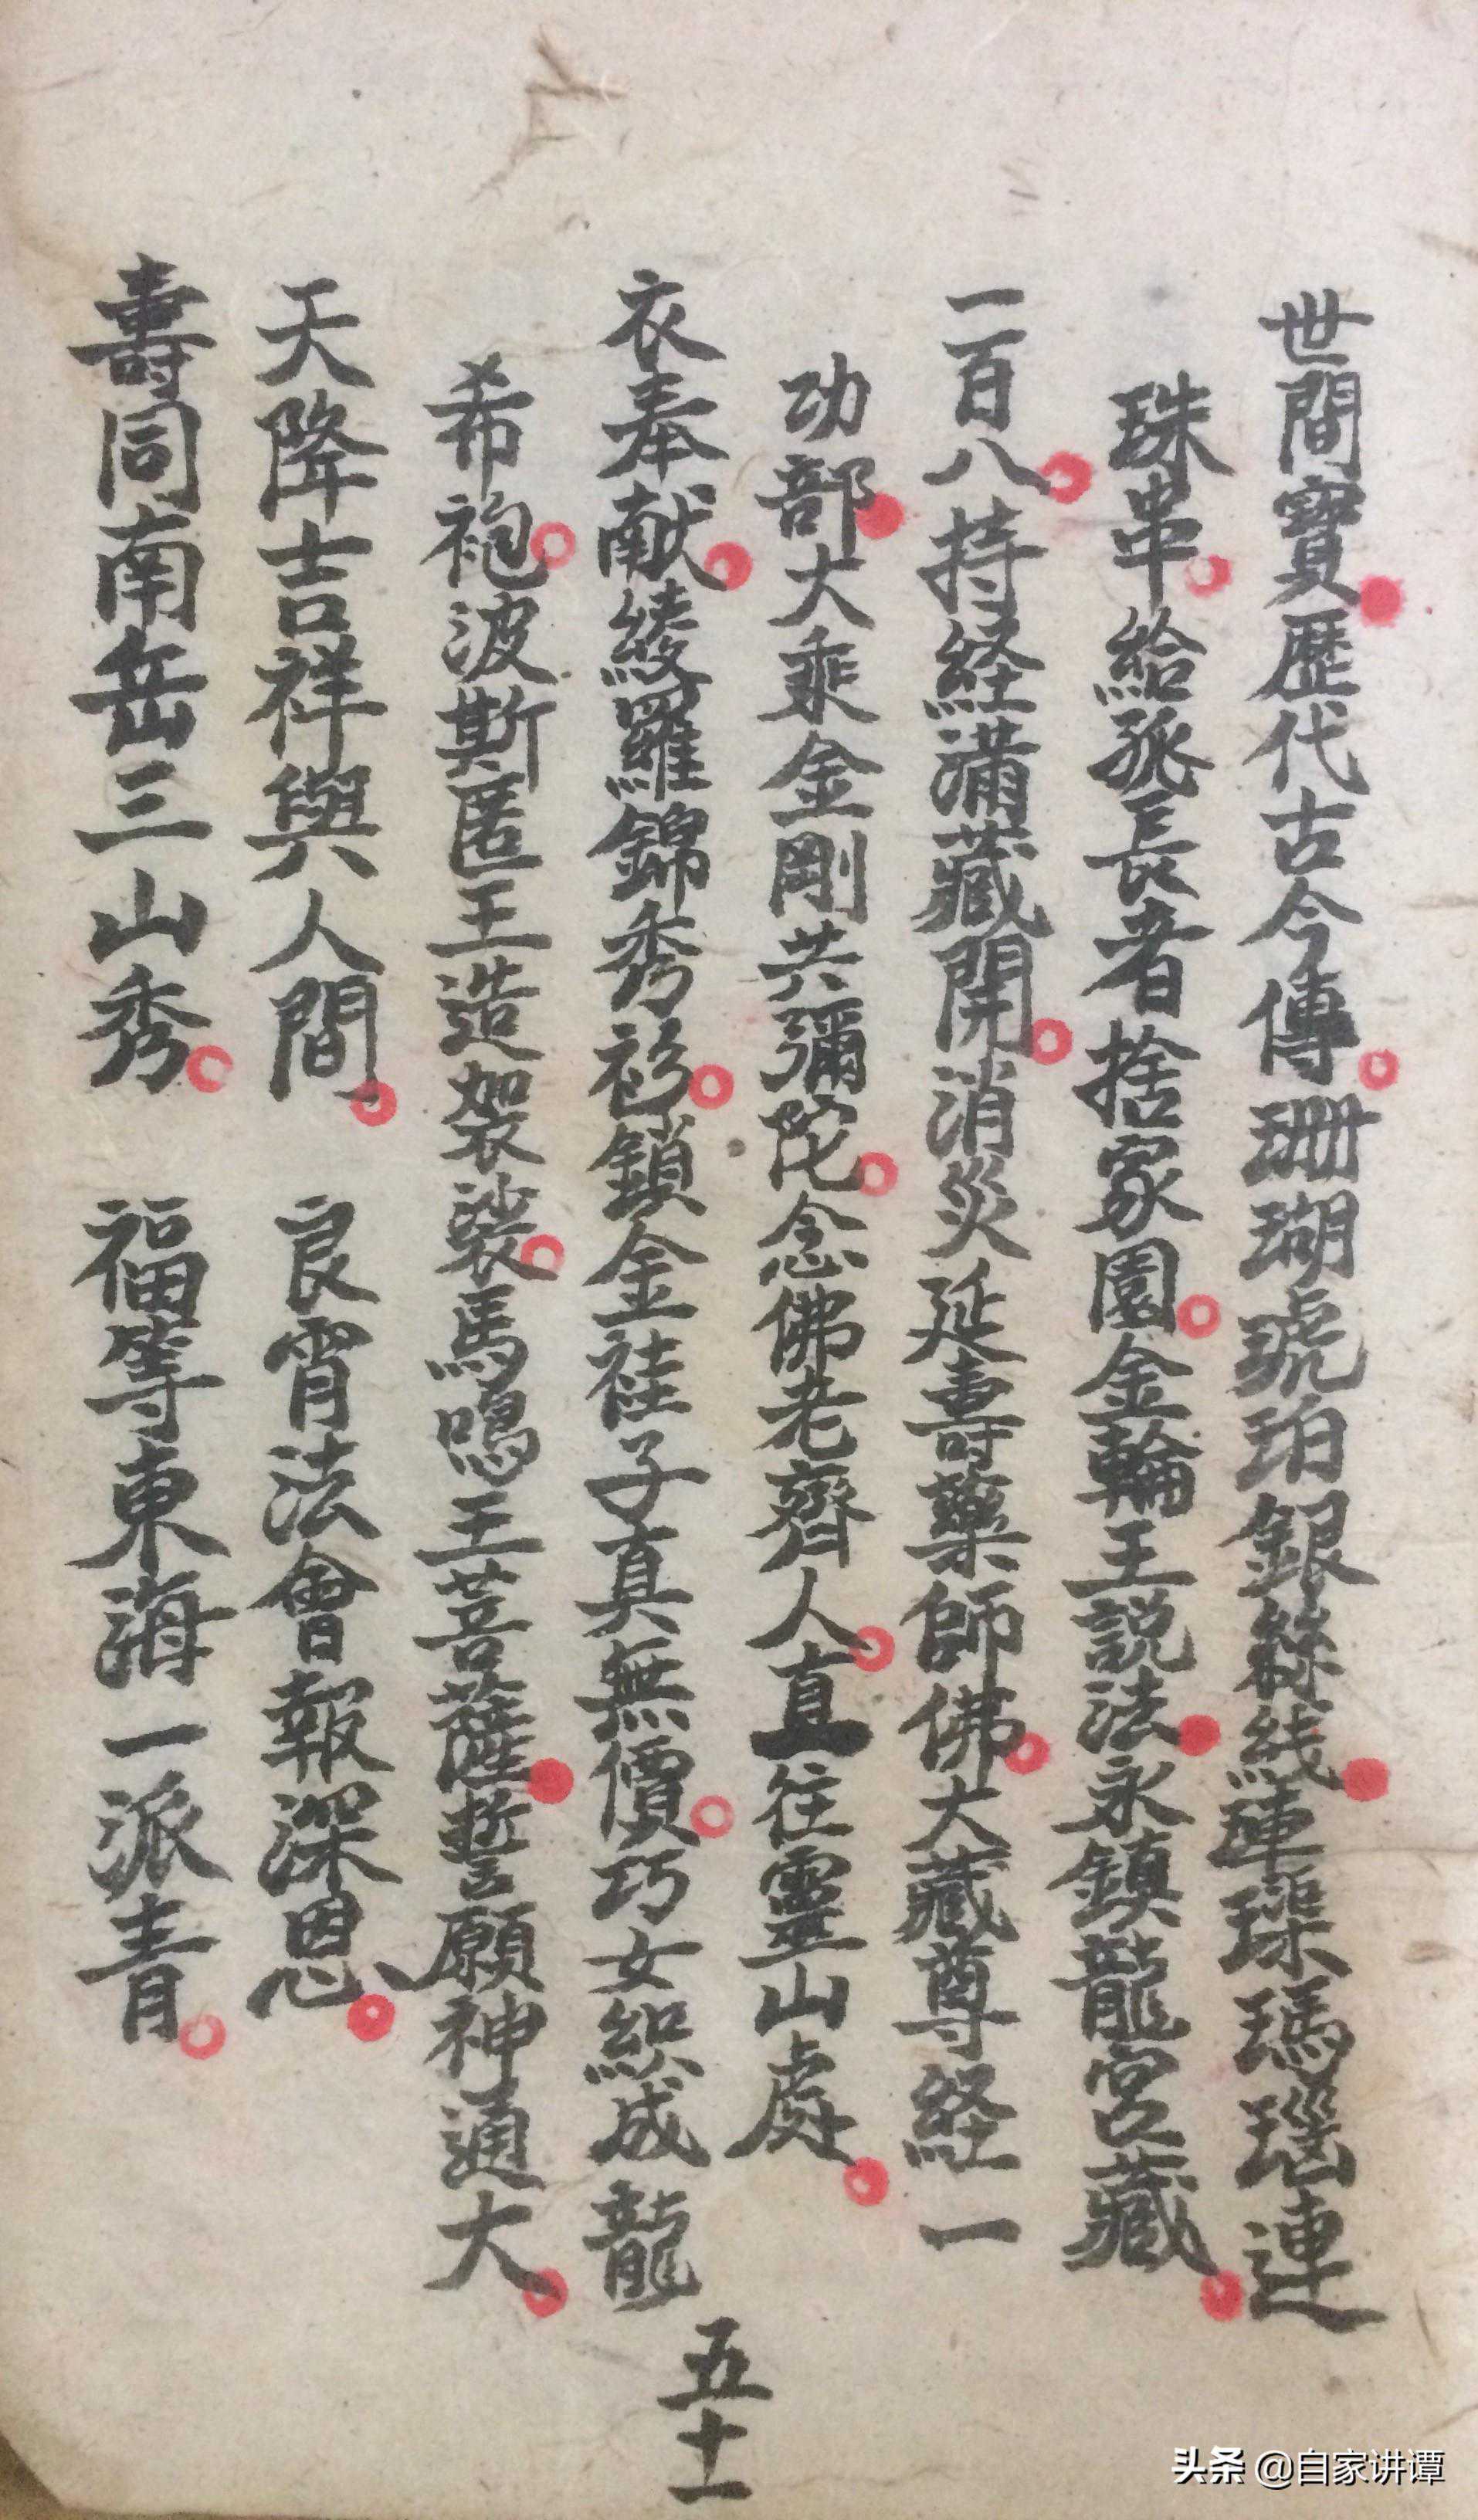 世間寶歷代古今傳珊瑚琥珀銀絲线璉璖瑪瑙連
珠串給孤長者捨家園金輪王説法永鎮龍宮藏
一百八持経滿藏開消災延壽藥師佛大藏尊経一
功部大乘金剛共彌陀念佛老齊人直往靈山處
衣奉献綾羅錦秀衫鎖金袿子真無價巧女織成龍
希袍波斯匿王造袈裟馬鳴王菩薩誓願神通大
天降吉祥與人間 良宵法會報深恩
壽同南岳三山秀 福等東海一派青
五十一
头条 @自家讲谭